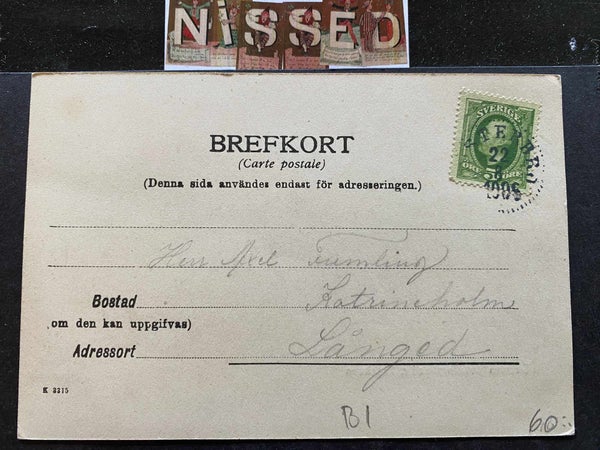 NISSED
SVERIGE
22
ÖRE 5 ÖRE
BREFKORT
(Carte postale)
(Denna sida användes endast för adresseringen.)
Herr Axel Fremling
Bostad Katrineholm
om den kan uppgifvas)
Adressort Långed
K 3315
B1
60:-